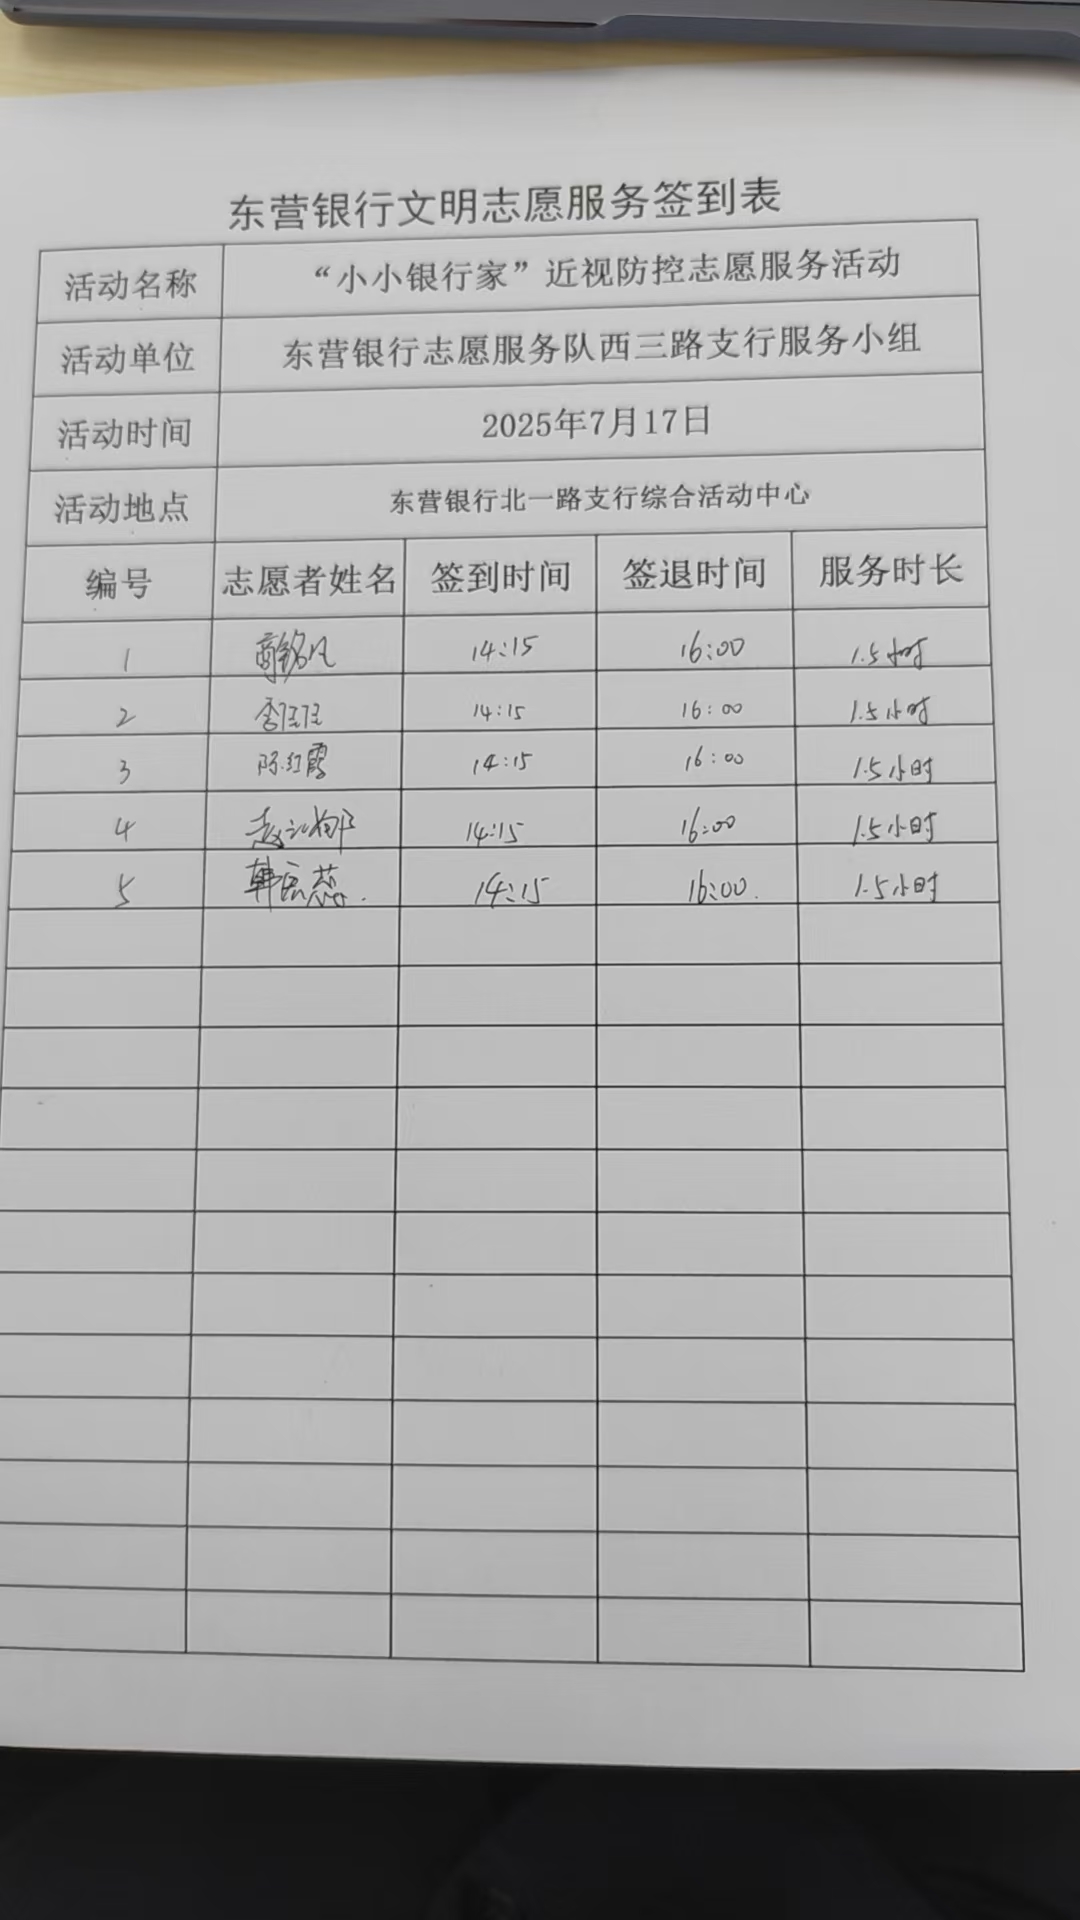 东营银行文明志愿服务签到表
活动名称 “小小银行家”近视防控志愿服务活动
活动单位 东营银行志愿服务队西三路支行服务小组
活动时间 2025年7月17日
活动地点 东营银行北一路支行综合活动中心
编号 志愿者姓名 签到时间 签退时间 服务时长
1 14:15 16:00 1.5小时
2 14:15 16:00 1.5小时
3 陈红霞 14:15 16:00 1.5小时
4 14:15 16:00 1.5小时
5 14:15 16:00. 1.5小时